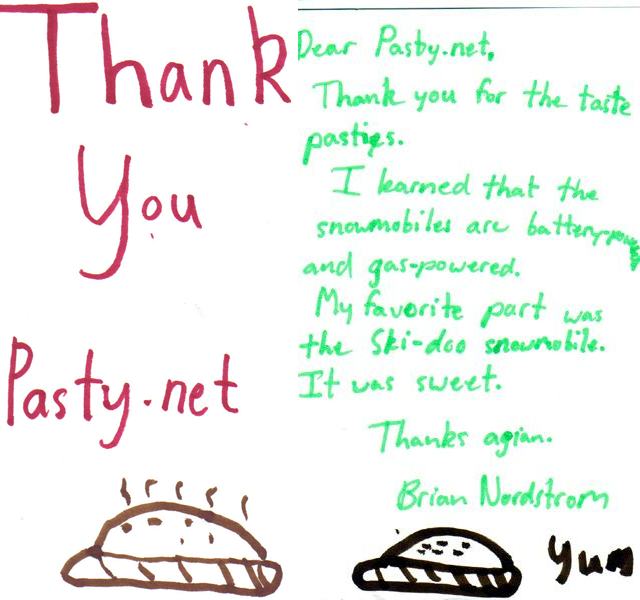 Thank
You
Pasty.net
Dear Pasty.net,
Thank you for the taste
pasties.
I learned that the
snowmobiles are battery-power
and gas-powered.
My favorite part was
the Ski-doo snowmobile.
It was sweet.
Thanks agian.
Brian Nordstrom
Yum